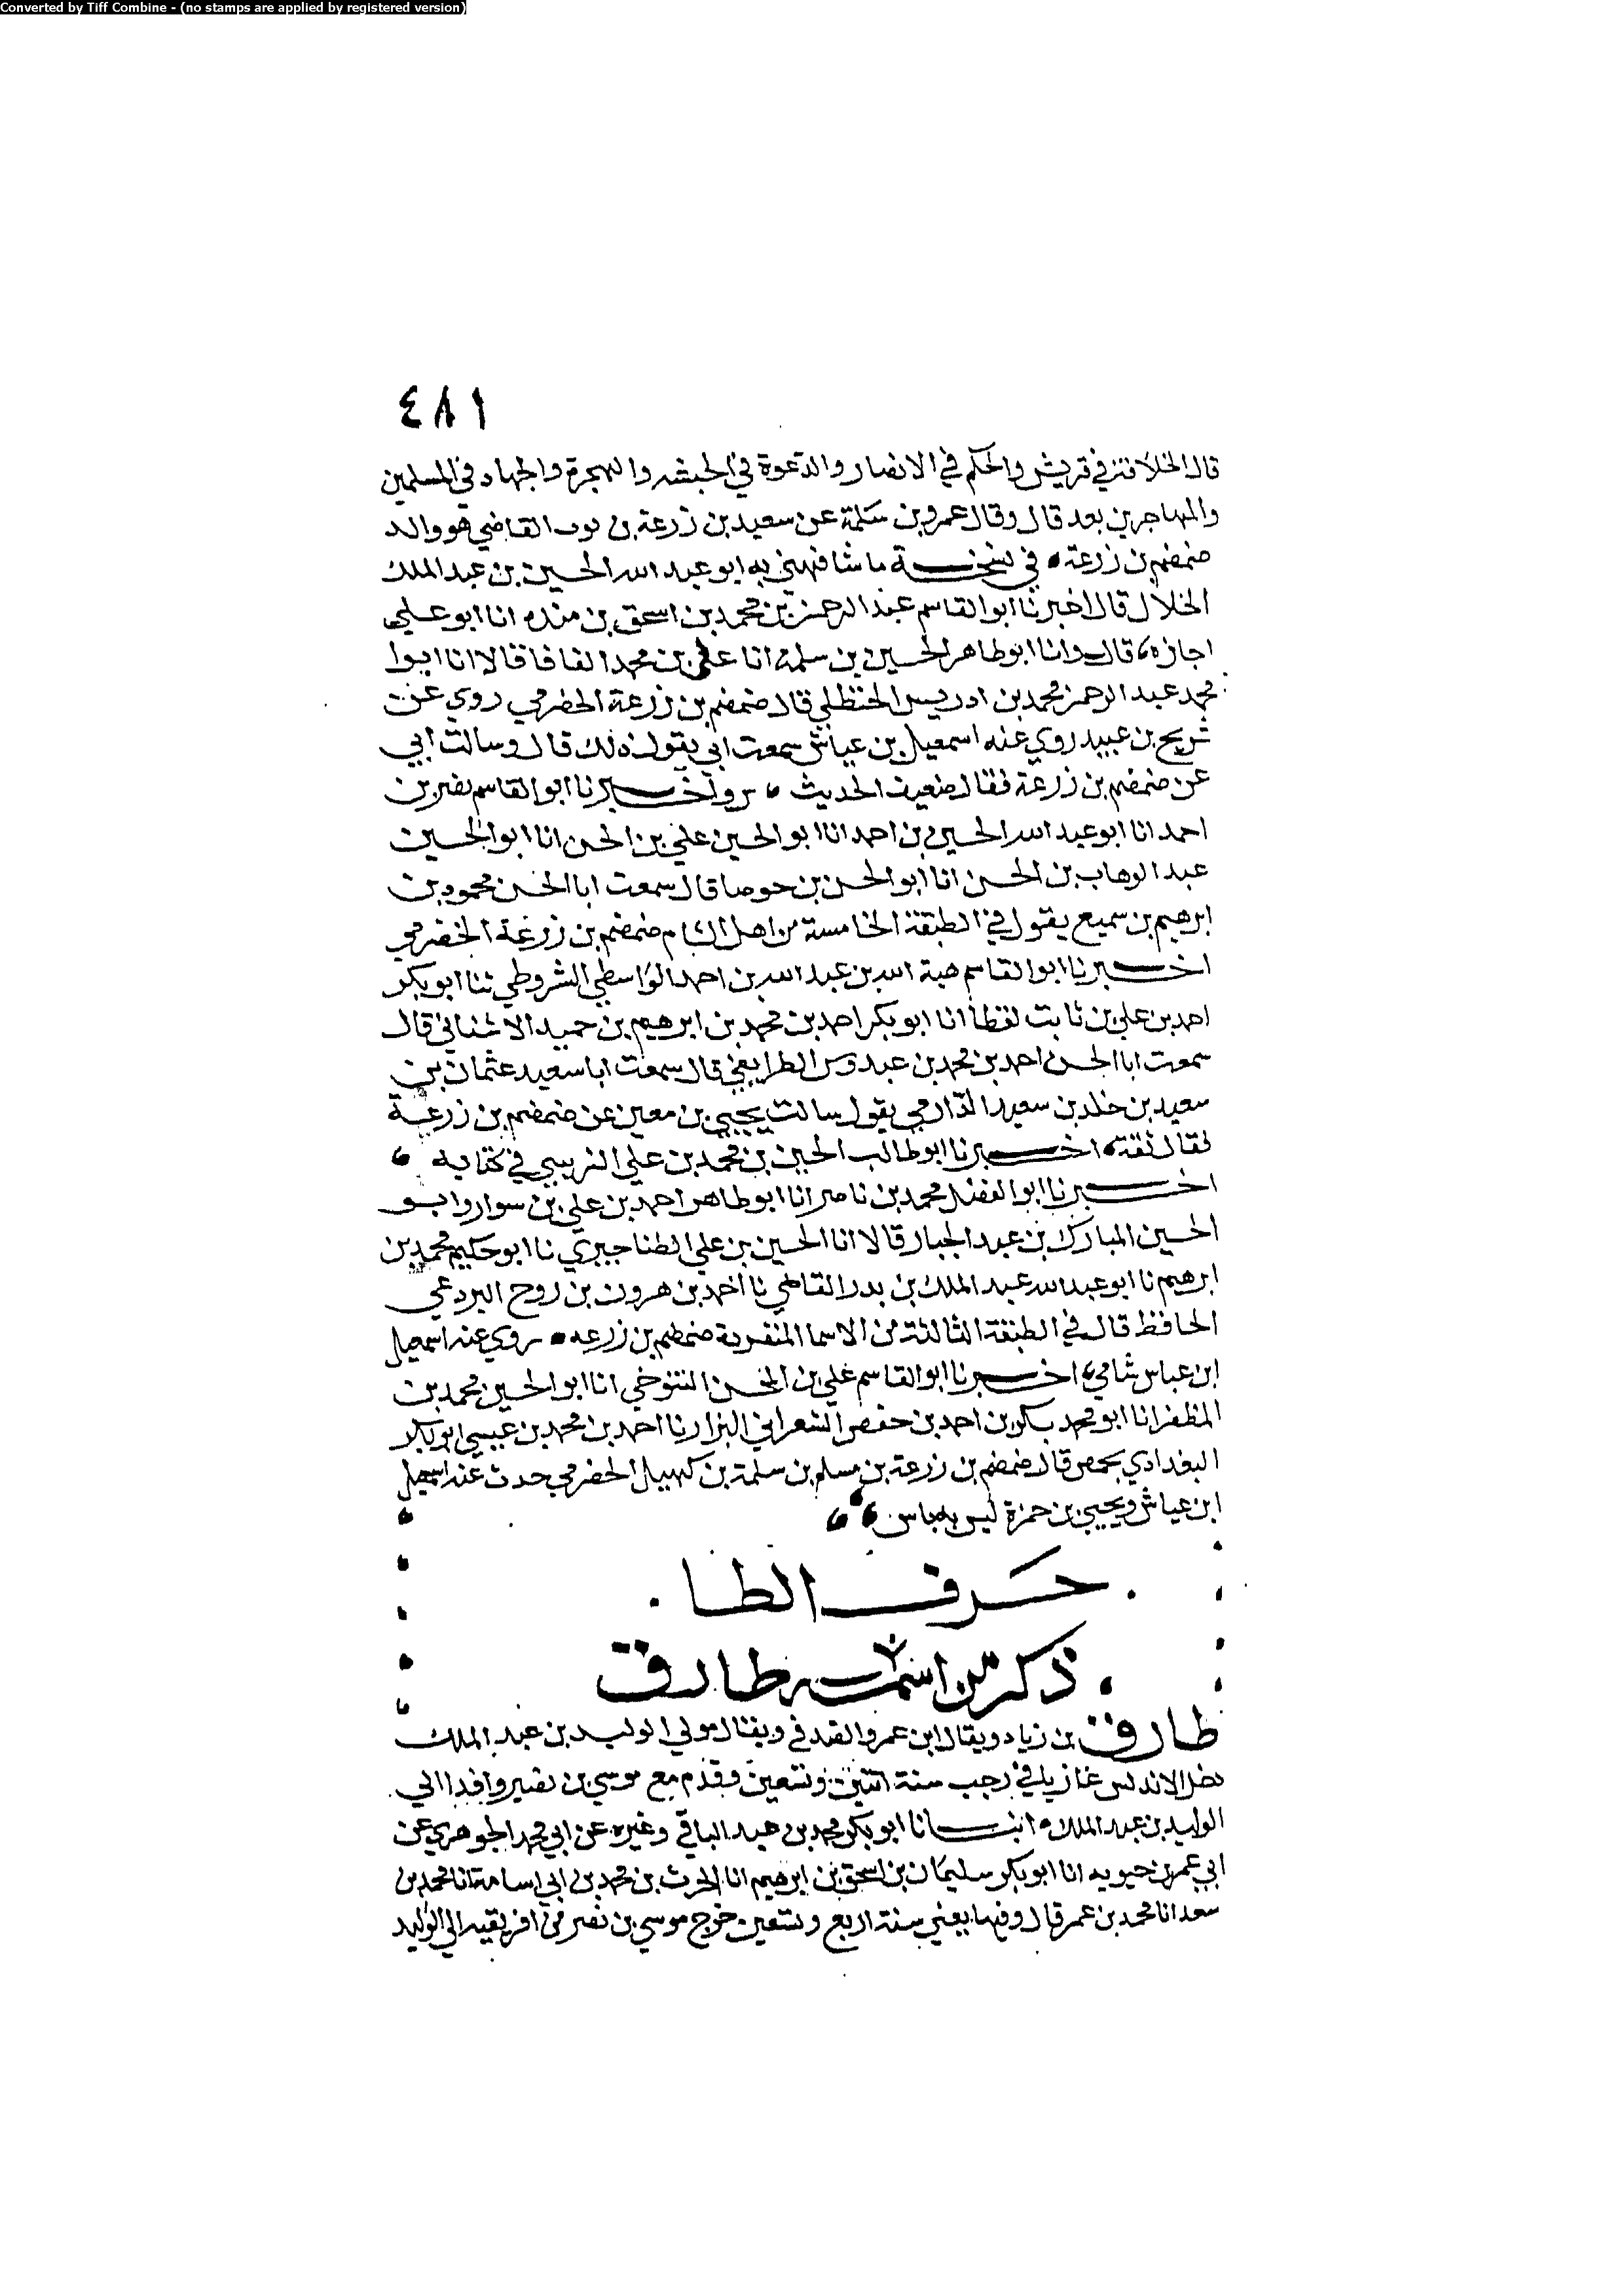 Converted by Tiff Combine - (no stamps are applied by registered version)
٤٨١
قال الخلافة في قريش والحكم في الانصار والدعوة في الحبشه والهجرة والجهاد في المسلمين
والمهاجرين بعد قال وقال عمرو بن سلمة عن سعيد بن زرعة القاضي هو والد
ضمضم بن زرعة في نسخة ما شافهني به ابو عبد الله الحسين بن عبد الملك
الخلال قال اخبرنا ابو القاسم عبد الرحمن بن محمد بن اسحق بن منده انا ابو علي
اجازه قال وانا ابو طاهر الحسين بن سلمة انا علي بن محمد الفافا قالا انا ابوا
محمد عبد الرحمن محمد بن ادريس الحنظلي قال ضمضم بن زرعة الحضرمي روي عن
شريح بن عبيد روي عنه اسمعيل بن عياش سمعت ابي يقول ذلك قال وسالت أبي
عن ضمضم بن زرعة فقال ضعيف الحديث واخبرنا ابو القاسم نصر بن
احمد انا ابو عبد الله الحسين بن احمد انا ابو الحسين علي بن الحسن انا ابو الحسين
عبد الوهاب بن الحسن انا ابو الحسن بن حوصا قال سمعت ابا الحسن محمود بن
ابرهيم بن سميع يقول في الطبقة الخامسة من اهل الشام ضمضم بن زرعة الحضرمي
اخبرنا ابو القاسم هبة الله بن عبد الله بن احمد الواسطي الشروطي ثنا ابو بكر
احمد بن علي بن ثابت لفظا انا ابو بكر احمد بن محمد بن ابرهيم بن حميد الاشناني قال
سمعت ابا الحسن احمد بن محمد بن عبدوس الطرايفي قال سمعت ابا سعيد عثمان بن
سعيد بن خلد بن سعيد الدارمي يقول سالت يحيي بن معين عن ضمضم بن زرعة
فقال ثقة اخبرنا ابو طالب الحسين بن محمد بن علي الزينبي في كتابه
اخبرنا ابو الفضل محمد بن ناصر انا ابو طاهر احمد بن علي بن سوار وابو
الحسين المبارك بن عبد الجبار قالا انا الحسين بن علي الطناجيري نا ابو حكيم محمد بن
ابرهيم نا ابو عبد الله عبد الملك بن بدر القاضي نا احمد بن هرون بن روح البردعي
الحافظ قال في الطبقة الثالثة من الاسما المنفردة ضمضم بن زرعه روي عنه اسمعيل
ابن عباس شامي اخبرنا ابو القاسم علي بن الحسن التنوخي انا ابو الحسين محمد بن
المظفر انا ابو محمد بكر بن احمد بن حفص الشعراني البزار نا احمد بن محمد بن عيسي ابو بكر
البغدادي بحمص قال ضمضم بن زرعة بن مسلم بن سلمة بن كهيل الحضرمي حدث عنه اسمعيل
ابن عياش ويحيي بن حمزة ليس به باس
حرف الطا
ذكر من اسمه طارق
طارق بن زياد ويقال ابن عمرو الصدفي ويقال مولي الوليد بن عبد الملك
دخل الاندلس غازيا في رجب سنة اثنتين وتسعين وقدم مع موسي بن نصير وافدا الي
الوليد بن عبد الملك انبانا ابو بكر محمد بن عبد الباقي وغيره عن ابي محمد الجوهري عن
ابي عمر بن حيويه انا ابو بكر سليمان بن اسحق بن ابرهيم انا الحرث بن محمد بن ابي اسامة نا محمد بن
سعد انا محمد بن عمر قال وفيها يعني سنة اربع وتسعين خرج موسي بن نصر من افريقيه الي الوليد